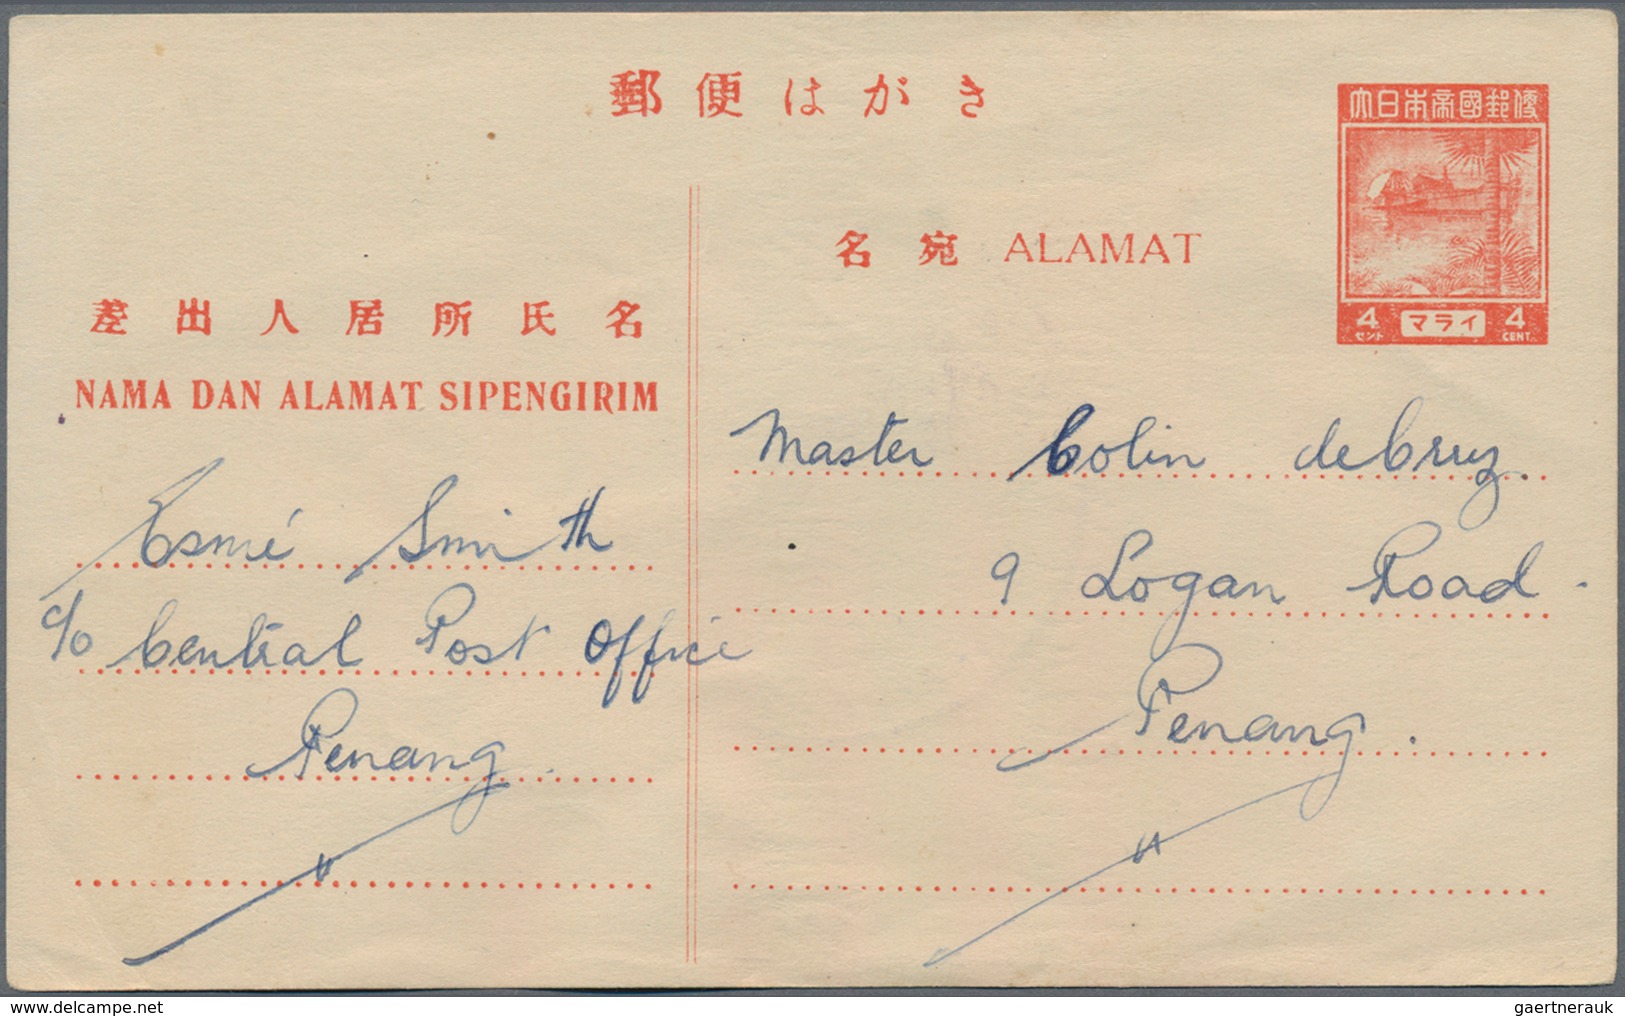 郵便はがき
大日本帝國郵便
4 マライ 4
セント CENT.
名宛 ALAMAT
差出人居所氏名
NAMA DAN ALAMAT SIPENGIRIM
Esmé Smith
c/o Central Post Office
Penang.
Master Colin deCruz.
9 Logan Road.
Penang.
delcampe.net
gaertnerauk